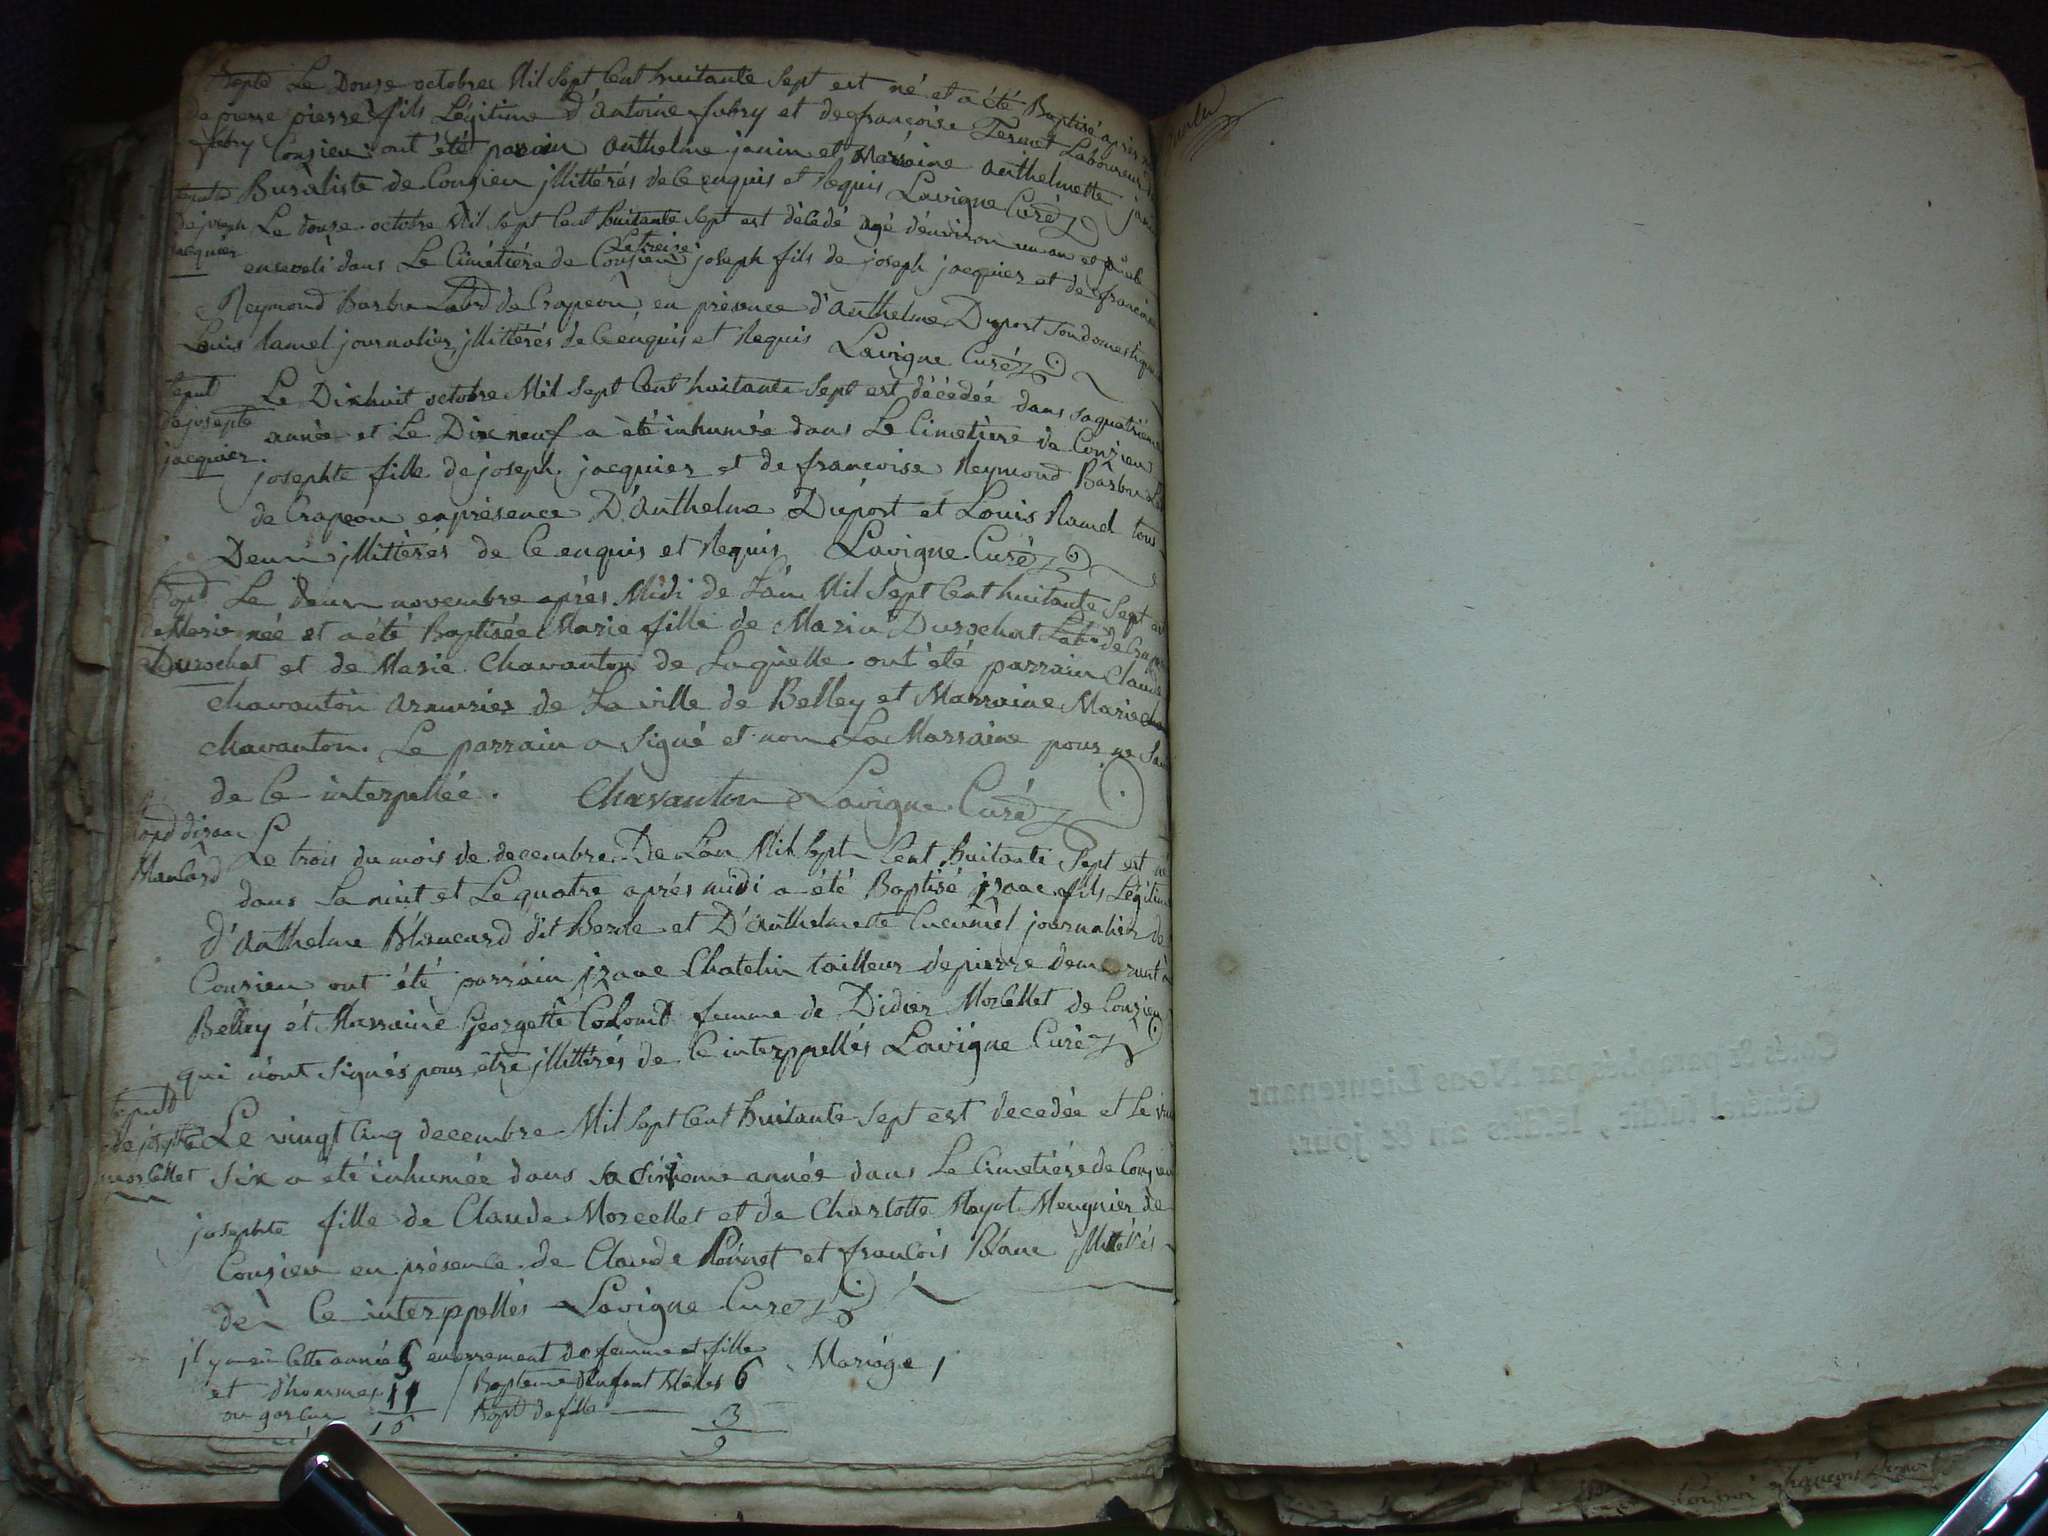 Bapt. Le Douze octobre Mil Sept Cent huitante Sept est né et a été Baptisé après
de pierre pierre fils Légitime d'antoine fabry et de françoise Ternet Laboureur
fabry Conzieu ont été parain anthelme janin et Maraine anthelmette
Buraliste de Conzieu jllittérés de Ce enquis et Requis Lavigne Curé
de joseph Le douze octobre Mil Sept Cent huitante Sept est décédé agé d'environ un an et
Le treize
jacquier enseveli dans Le Cimétiére de Conzieu joseph fils de joseph jacquier et de françoise
Reymond Barbu Labr de Crapeou en présence d'anthelme Duport son domestique
Louis Ramel journalier, jllittérés de Ce enquis et Requis Lavigne Curé
Sepult Le Dixhuit octobre Mil Sept Cent huitante Sept est décédée dans sa quatrieme
de josephte année et Le Dix neuf a été inhumée dans Le Cimetière de Conzieu
jacquier. josephte fille de joseph jacquier et de françoise Reymond Barbu
de Crapeou en présence D'anthelme Duport et Louis Ramel tous
Deux jllittérés de Ce enquis et Requis Lavigne Curé
Bapt Le deux novembre après Midi de L'an Mil Sept Cent huitante Sept
de Marie née et a été Baptisée Marie fille de Marin Durochat Labr de
Durochat et de Marie Chavanton de Laquelle ont été parrain Claude
Chavanton armurier de La ville de Belley et Marraine Marie
Chavanton. Le parrain a signé et non La Marraine pour ne
de Ce interpellée. Chavanton Lavigne Curé
Bapt d'izaac Le trois du mois de decembre De L'an Mil Sept Cent huitante Sept est né
Blancard dans La nuit et Le quatre après midi a été Baptisé izaac fils Légitime
d'anthelme Blancard dit Berde et D'anthelmette Cucuniel journalier de
Conzieu ont été parrain izaac Chatelin tailleur de pierre demeurant à
Belley et Marraine Georgette Colomb femme de Didier Morcellet de Conzieu
qui n'ont signés pour être jllittérés de Ce interppellés Lavigne Curé
Sepult
de josephte Le vingt Cinq decembre Mil Sept Cent huitante Sept est decedée et Le
morcellet Six a été inhumée dans sa sixieme année dans Le Cimetiére de Conzieu
josephte fille de Claude Morcellet et de Charlotte Mayot Meugnier de
Conzieu en présence de Claude et françois Blanc jllittérés
de Ce interppellés Lavigne Curé
jl y a eu Cette année 5 enterrement de femme et fille
et d'hommes 11 / Bapteme d'enfant Mâles 6 Mariage 1
ou garçon 16 Bapt de fille 3
9
Cotés & paraphés par Nous Lieutenant
Général susdit, lesdits an & jour.